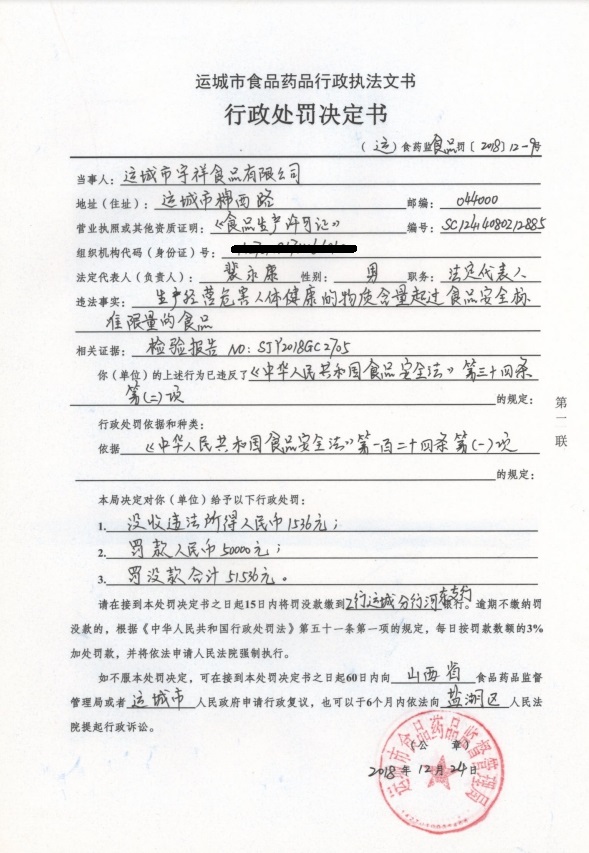 运城市食品药品行政执法文书
行政处罚决定书
（运）食药监食品罚〔2018〕12-9号
当事人：运城市宇祥食品有限公司
地址（住址）：运城市柳西路 邮编：044000
营业执照或其他资质证明：《食品生产许可证》 编号：SC12414080212885
组织机构代码（身份证）号：
法定代表人（负责人）：裴永康 性别：男 职务：法定代表人
违法事实：生产经营危害人体健康的物质含量超过食品安全标
准限量的食品
相关证据：检验报告 NO：SJY2018GC2705
你（单位）的上述行为已违反了《中华人民共和国食品安全法》第三十四条
第（二）项 的规定；
行政处罚依据和种类：
依据《中华人民共和国食品安全法》第一百二十四条第（一）项
的规定；
本局决定对你（单位）给予以下行政处罚：
1. 没收违法所得人民币1536元；
2. 罚款人民币50000元；
3. 罚没款合计51536元。
请在接到本处罚决定书之日起15日内将罚没款缴到工行运城分行河东支行银行。逾期不缴纳罚
没款的，根据《中华人民共和国行政处罚法》第五十一条第一项的规定，每日按罚款数额的3%
加处罚款，并将依法申请人民法院强制执行。
如不服本处罚决定，可在接到本处罚决定书之日起60日内向山西省食品药品监督
管理局或者运城市人民政府申请行政复议，也可以于6个月内依法向盐湖区人民法
院提起行政诉讼。
（公 章）
2018年12月24日
运城市食品药品监督管理局
第一联